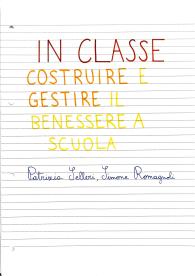 IN CLASSE
COSTRUIRE E
GESTIRE IL
BENESSERE A
SCUOLA
Patrizia Selleri, Simone Romagnoli